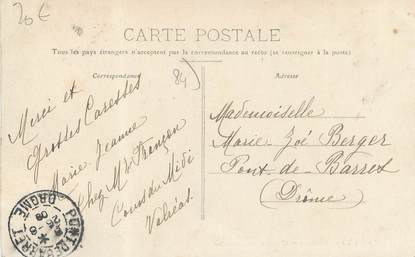 20€
CARTE POSTALE
Tous les pays étrangers n'acceptent pas la correspondance au recto (se renseigner à la poste)
Correspondance
84)
Merci et
Grosses Caresses
Marie-Jeanne
Chez Mr
Cours du Midi
Valréas.
Adresse
Mademoiselle
Marie-Zoé Berger
Pont-de-Barret
(Drôme)
PONT-DE-BARRET
DROME